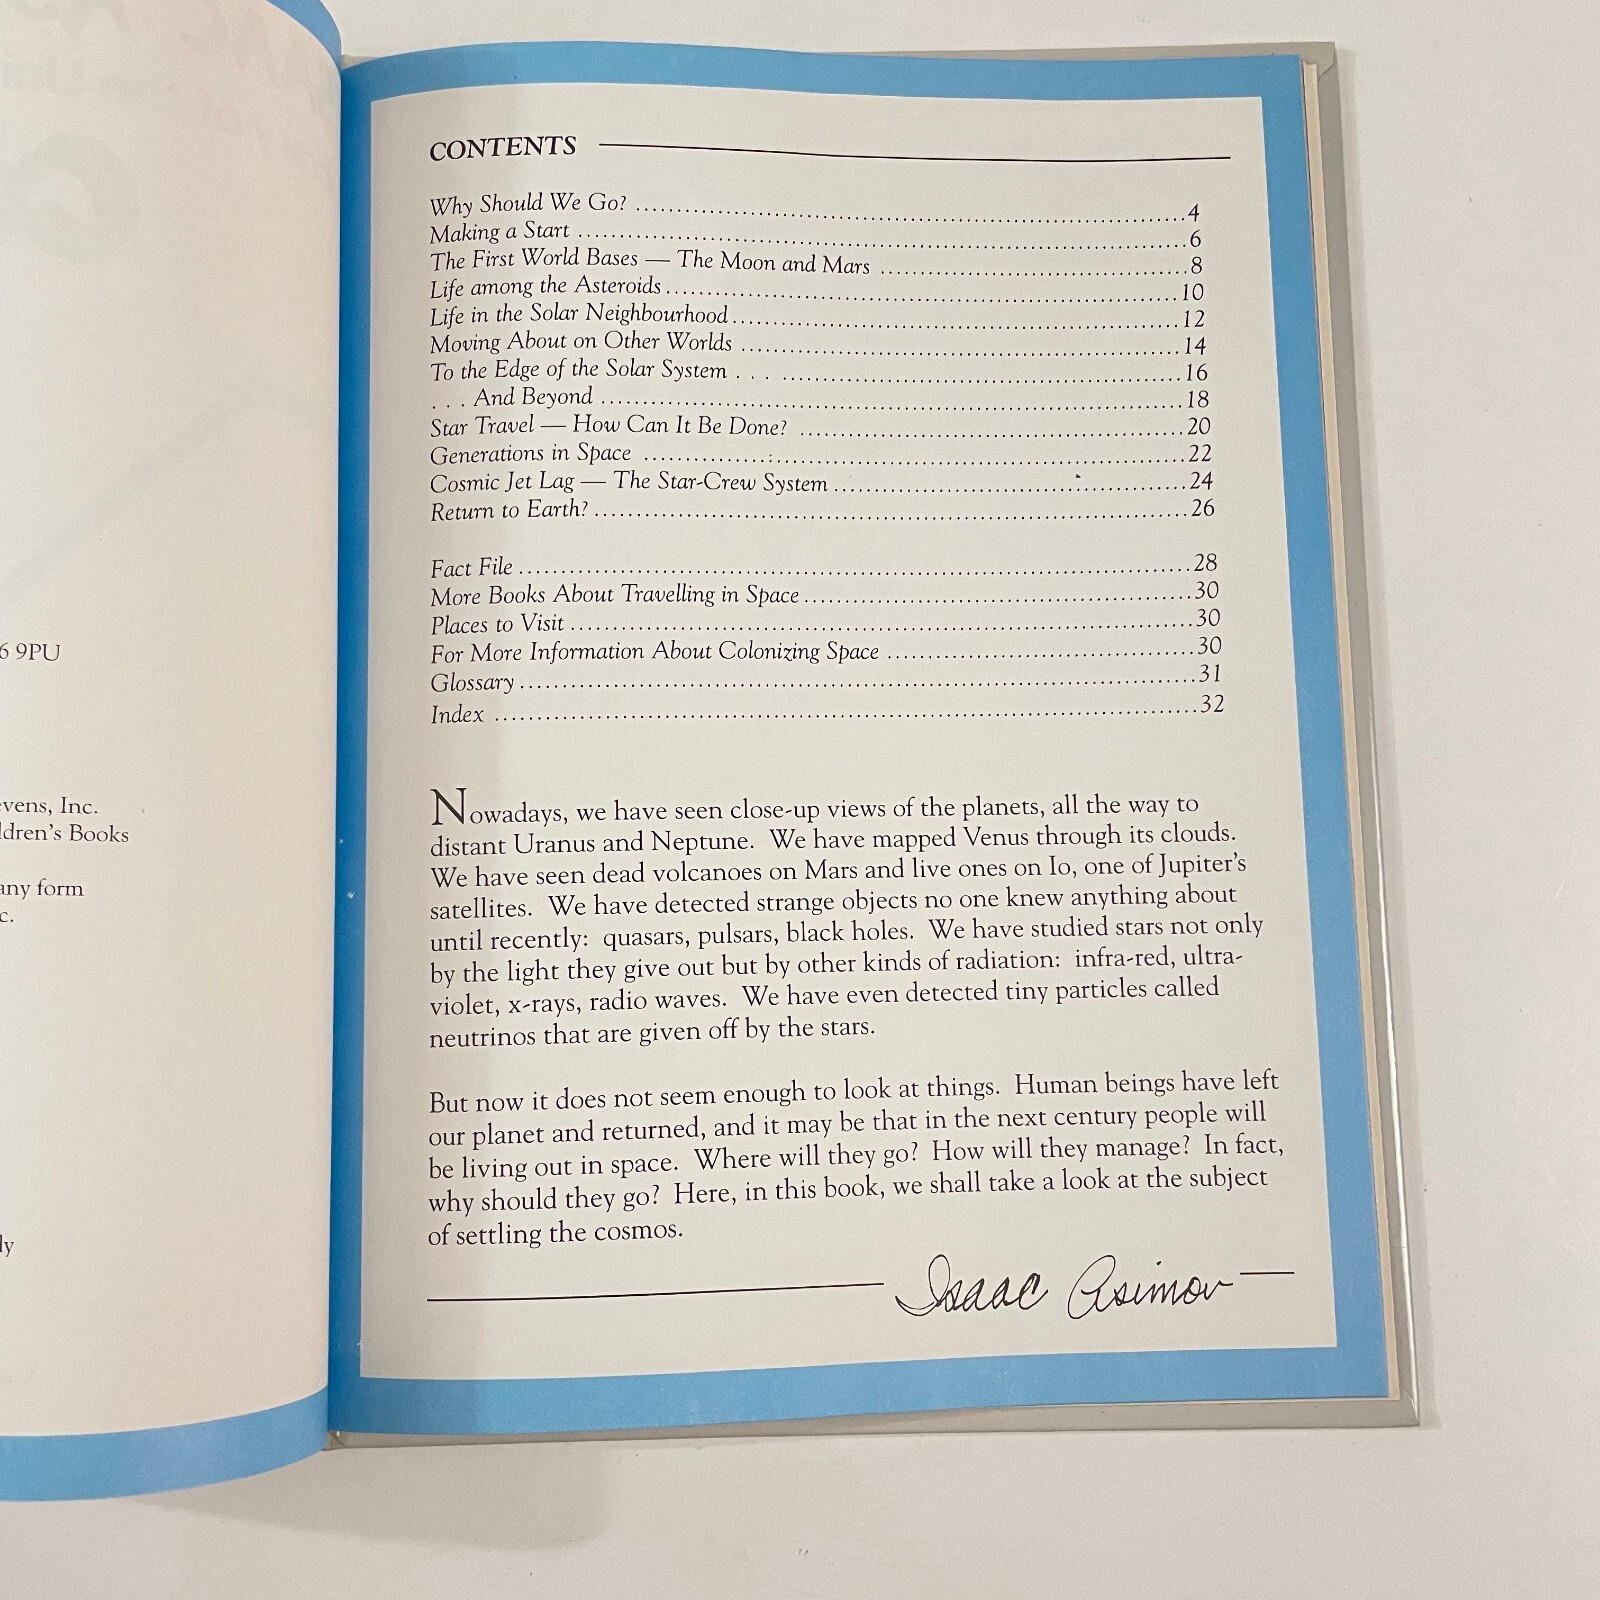 6 9PU
vens, Inc.
ldren's Books
any form
c.
ly
CONTENTS
Why Should We Go? ........ 4
Making a Start ........ 6
The First World Bases — The Moon and Mars ........ 8
Life among the Asteroids ........ 10
Life in the Solar Neighbourhood ........ 12
Moving About on Other Worlds ........ 14
To the Edge of the Solar System . . . ........ 16
. . . And Beyond ........ 18
Star Travel — How Can It Be Done? ........ 20
Generations in Space ........ 22
Cosmic Jet Lag — The Star-Crew System ........ 24
Return to Earth? ........ 26
Fact File ........ 28
More Books About Travelling in Space ........ 30
Places to Visit ........ 30
For More Information About Colonizing Space ........ 30
Glossary ........ 31
Index ........ 32
Nowadays, we have seen close-up views of the planets, all the way to
distant Uranus and Neptune. We have mapped Venus through its clouds.
We have seen dead volcanoes on Mars and live ones on Io, one of Jupiter's
satellites. We have detected strange objects no one knew anything about
until recently: quasars, pulsars, black holes. We have studied stars not only
by the light they give out but by other kinds of radiation: infra-red, ultra-
violet, x-rays, radio waves. We have even detected tiny particles called
neutrinos that are given off by the stars.
But now it does not seem enough to look at things. Human beings have left
our planet and returned, and it may be that in the next century people will
be living out in space. Where will they go? How will they manage? In fact,
why should they go? Here, in this book, we shall take a look at the subject
of settling the cosmos.
Isaac Asimov